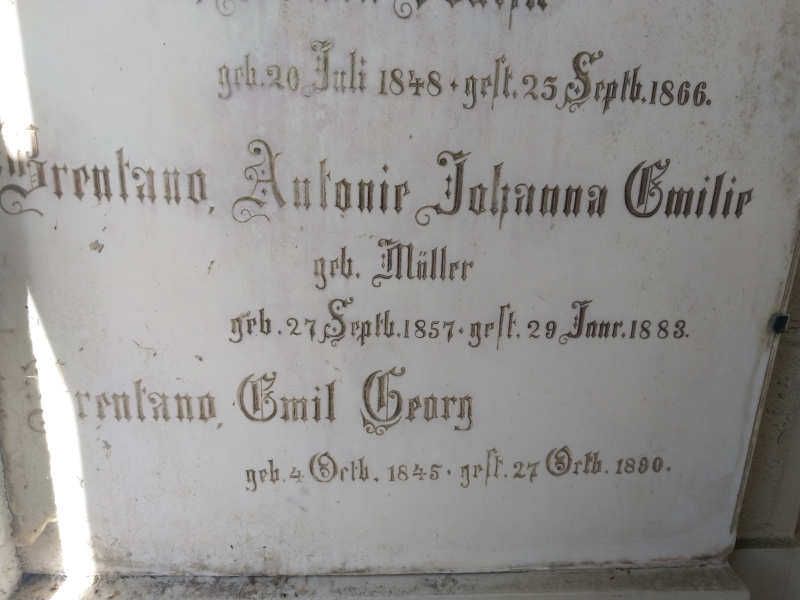 geb. 20 Juli 1848 · gest. 25 Septb. 1866.
Brentano, Antonie Johanna Emilie
geb. Müller
geb. 27 Septb. 1857 · gest. 29 Janr. 1883.
Brentano, Emil Georg
geb. 4 Octb. 1845 · gest. 27 Octb. 1890.